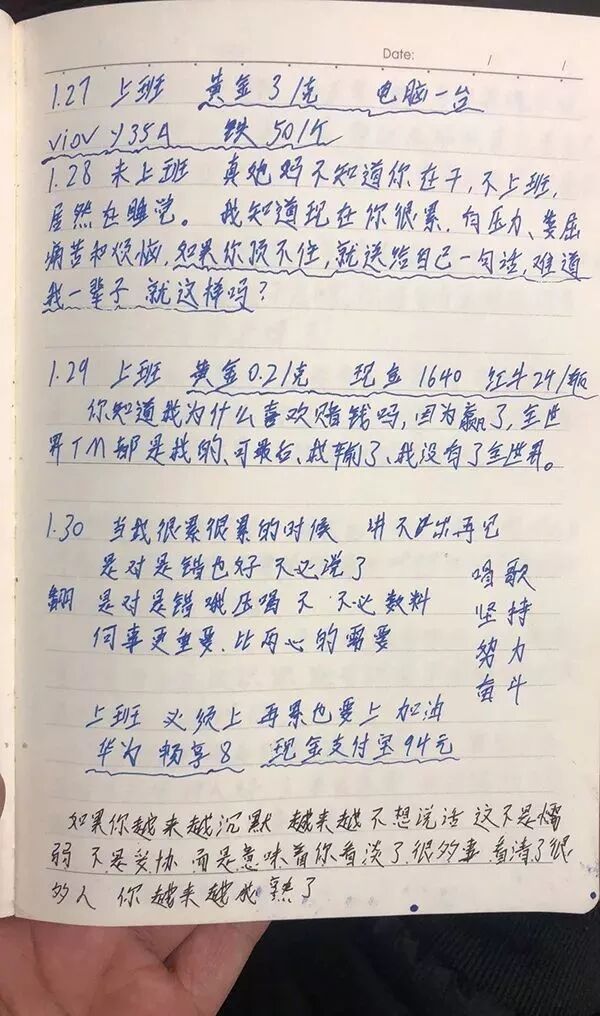 Date: / /
1.27 上班 黄金31克 电脑一台
viov y35A 铁501斤
1.28 未上班 真他妈不知道你在干,不上班,
居然在睡觉。我知道现在你很累,有压力、委屈
痛苦和烦恼,如果你顶不住,就送给自己一句话,难道
我一辈子 就这样吗?
1.29 上班 黄金0.21克 现金1640 红牛24/瓶
你知道我为什么喜欢赌钱吗,因为赢了,全世
界TM都是我的、可最后、我输了、我没有了全世界。
1.30 当我很累很累的时候 讲不出再见
是对是错也好 不必说了 唱歌
翻 是对是错 不 不必数料 坚持
何事更重要、比两心的需要 努力
奋斗
上班 必须上 再累也要上 加油
华为 畅享8 现金支付宝94元
如果你越来越沉默 越来越不想说话 这不是懦
弱 不是妥协 而是意味着你看淡了很多事 看清了很
多人 你越来越成熟了